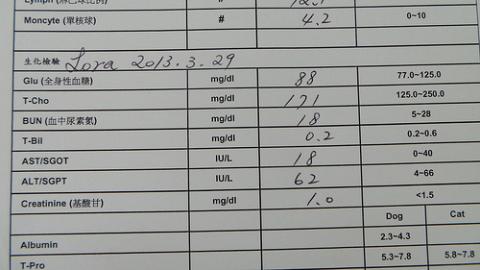 Lymph (淋巴球比例) # 12.1
Moncyte (單核球) # 4.2 0~10
生化檢驗 Lora 2013.3.29
Glu (全身性血糖) mg/dl 88 77.0~125.0
T-Cho mg/dl 171 125.0~250.0
BUN (血中尿素氮) mg/dl 18 5~28
T-Bil mg/dl 0.2 0.2~0.6
AST/SGOT IU/L 18 0~40
ALT/SGPT IU/L 62 4~66
Creatinine (基酸甘) mg/dl 1.0 <1.5
Dog Cat
Albumin 2.3~4.3
T-Pro 5.3~7.8 5.8~7.8